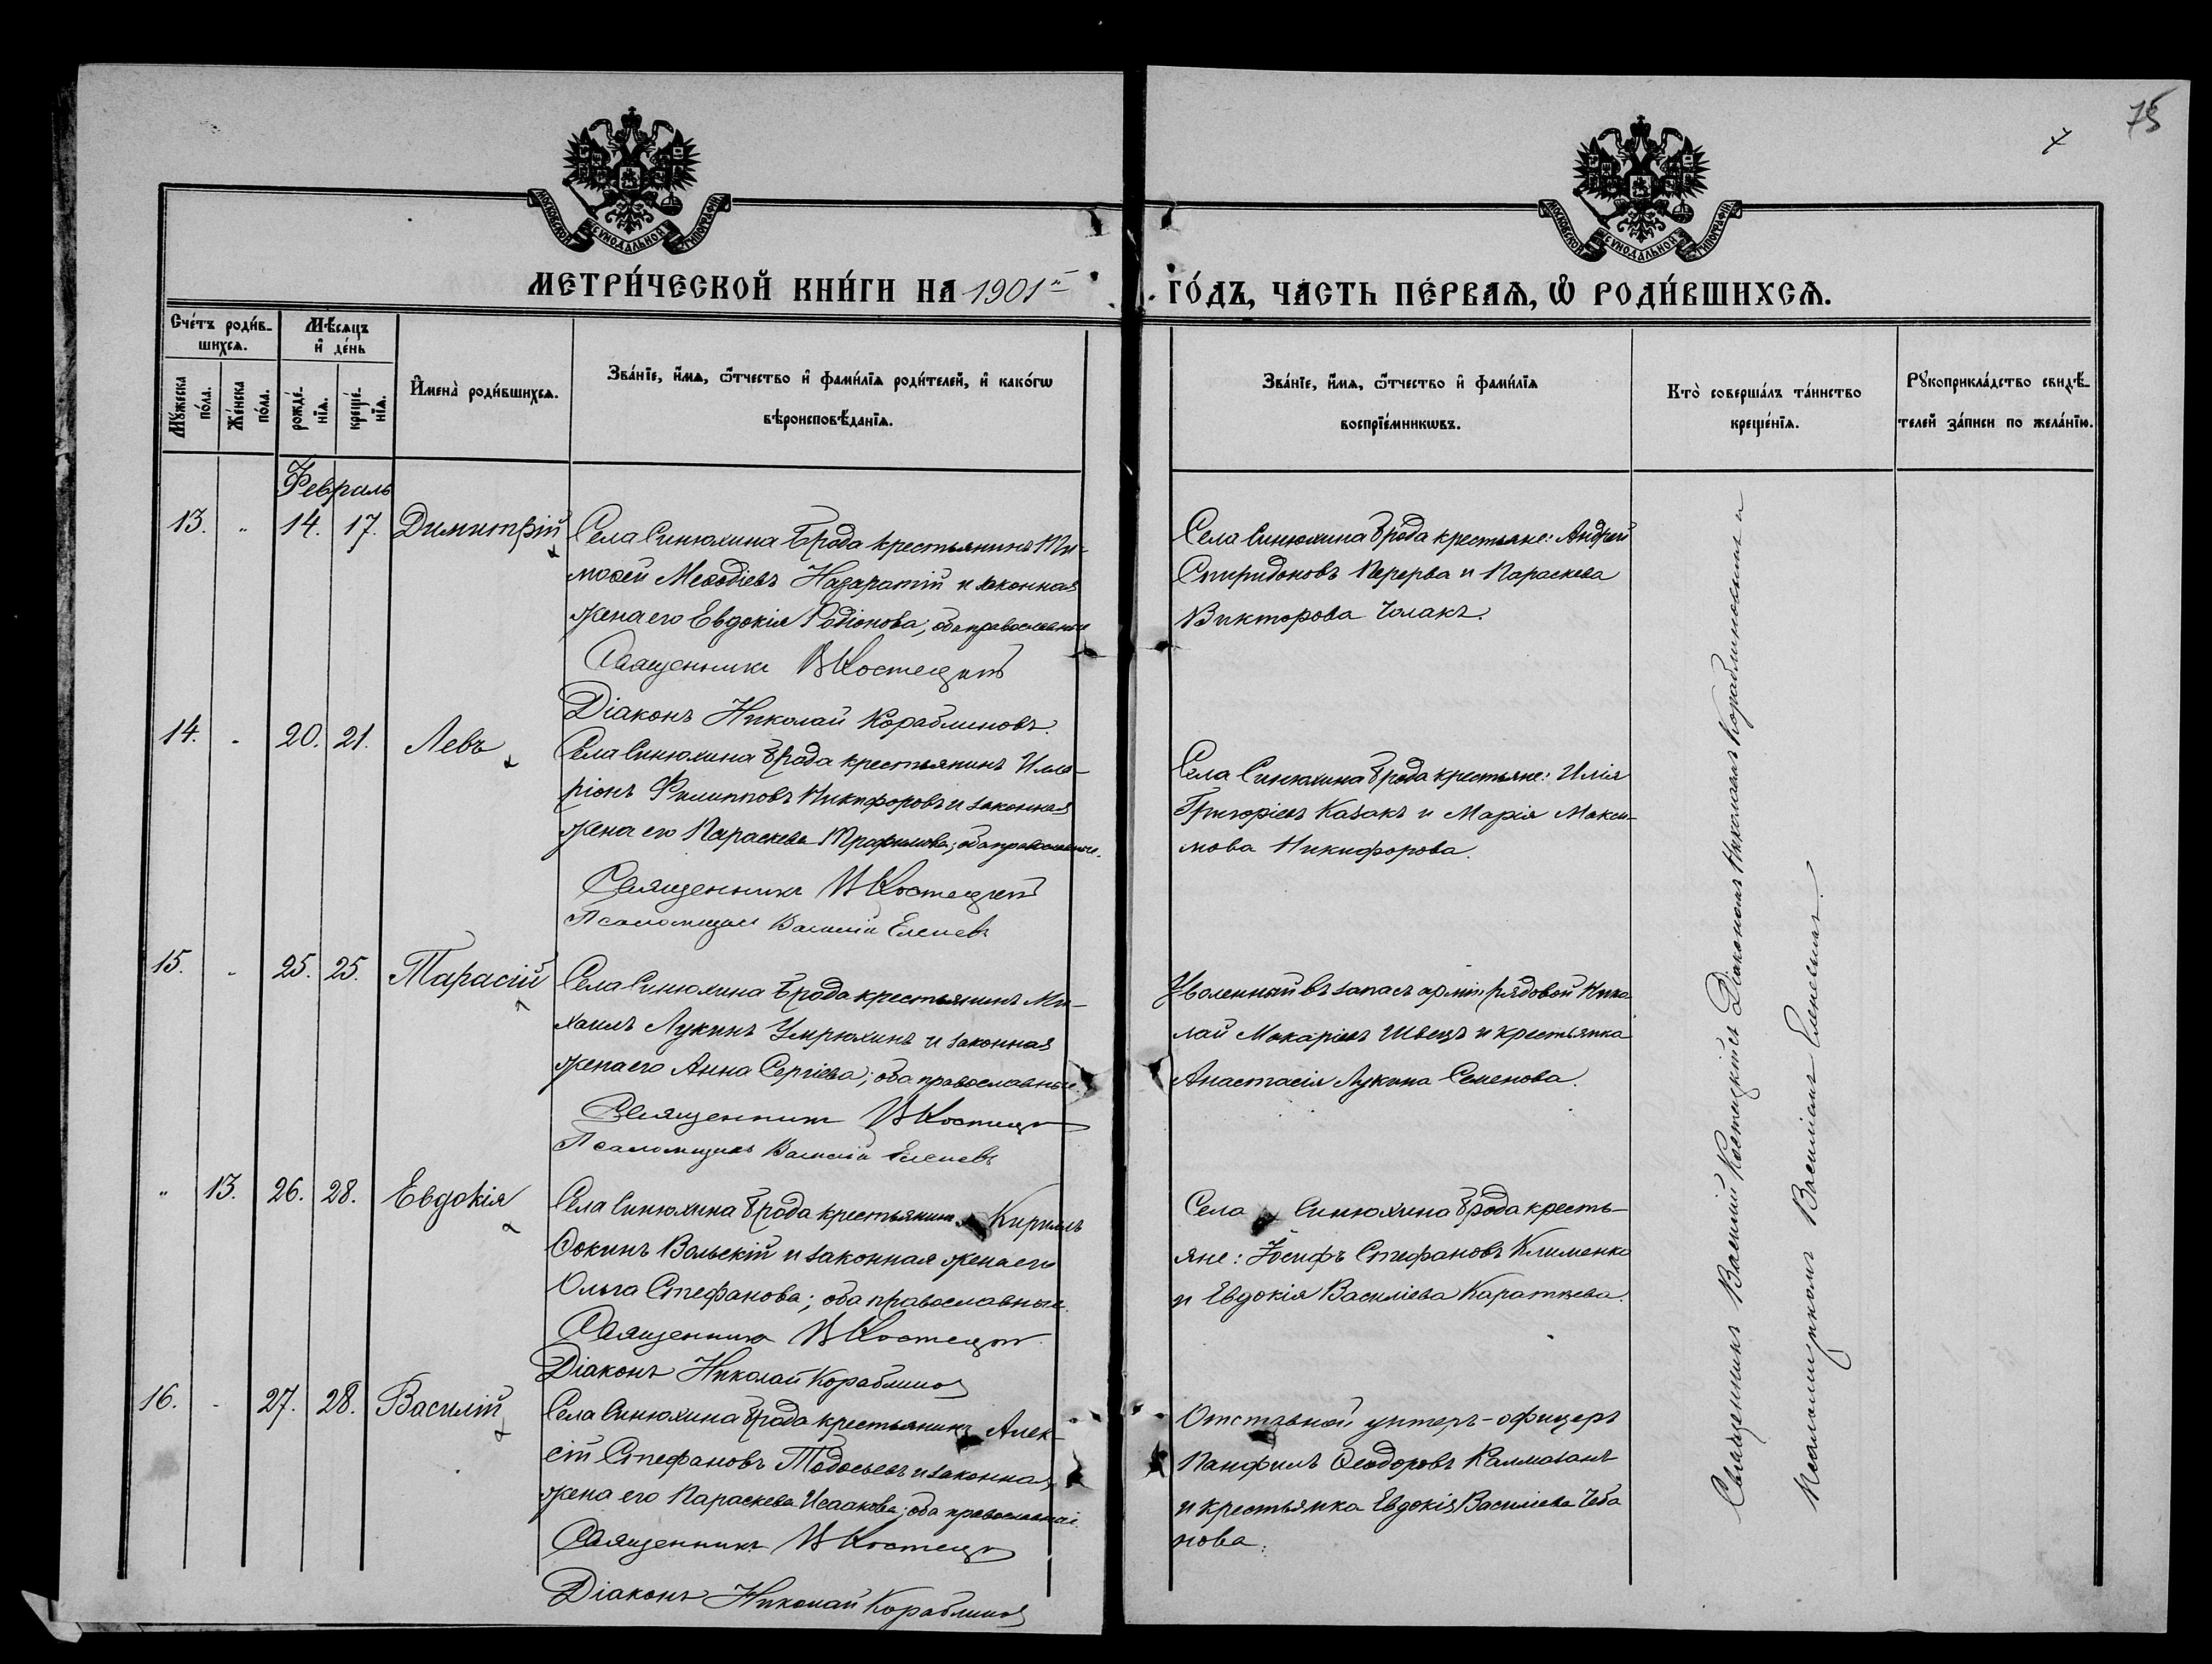 75
МОСКОВСКОЙ СѴНОДАЛЬНОЙ ТИПОГРАФІИ
МОСКОВСКОЙ СѴНОДАЛЬНОЙ ТИПОГРАФІИ
МЕТРИ́ЧЕСКОЙ КНИ́ГИ НА 1901й
ГО́ДЪ, ЧАСТЬ ПЕ́РВАѦ, Ѡ҆ РОДИ́ВШИХСѦ.
Сче́тъ роди́в-
шихсѧ.
Мѣ́сѧцъ
и҆ де́нь
Мꙋжеска
по́ла.
Же́нска
по́ла.
рожде́-
нїѧ.
креще́-
нїѧ.
И҆мена̀ роди́вшихсѧ.
Зва́нїе, и҆́мѧ, ѻ҆́тчество и҆ фами́лїѧ роди́телей, и҆ како́гѡ
вѣроисповѣ́данїѧ.
Зва́нїе, и҆́мѧ, ѻ҆́тчество и҆ фами́лїѧ
воспрїе́мникѡвъ.
Кто̀ соверша́лъ та́инство
креще́нїѧ.
Рꙋкоприкла́дство свидѣ́-
телей за́писи по жела́нїю.
Февраль
13. „ 14. 17. Димитрій
Села Синюхина Брода крестьянинъ Ти-
моѳей Меѳодіевъ Назаратій и законная
жена его Евдокія Родіонова, оба православные
Священникъ В Костецкій
Діаконъ Николай Кораблиновъ.
Села Синюхина Брода крестьяне: Андрей
Спиридоновъ Перерва и Параскева
Викторова Чолакъ.
14. „ 20. 21. Левъ
Села Синюхина Брода крестьянинъ Илла-
ріонъ Филипповъ Никифоровъ и законная
жена его Параскева Трофимова; оба православные.
Священникъ В Костецкій
Псаломщикъ Василій Еленевъ
Села Синюхина Брода крестьяне: Илія
Григоріевъ Казакъ и Марія Макси-
мова Никифорова.
15. „ 25. 25. Тарасій
Села Синюхина Брода крестьянинъ Ми-
хаилъ Лукинъ Умрюхинъ и законная
жена его Анна Сергіева; оба православные.
Священникъ В Костецкій
Псаломщикъ Василій Еленевъ
Уволенный въ запасъ арміи рядовой Нико-
лай Макаріевъ Швецъ и крестьянка
Анастасія Лукина Семенова.
„ 13. 26. 28. Евдокія
Села Синюхина Брода крестьянинъ Кириллъ
Ѳокинъ Вольскій и законная жена его
Ольга Стефанова; оба православные.
Священникъ В Костецкій
Діаконъ Николай Кораблинов
Села Синюхина Брода кресть-
яне: Іосифъ Стефановъ Клименко
и Евдокія Василіева
16. „ 27. 28. Василій
Села Синюхина Брода крестьянинъ Алек-
сій Стефановъ Тодосьевъ и законная
жена его Параскева Исаакова; оба православные.
Священникъ В Костецкій
Діаконъ Николай Кораблинов
Отставной унтеръ-офицеръ
Панфилъ Ѳеодоровъ Калмазанъ
и крестьянка Евдокія Василіева Чеба
нова.
Священникъ Василій Костецкій съ Діакономъ Николаемъ Кораблиновымъ и
Псаломщикомъ Василіемъ Еленевымъ.